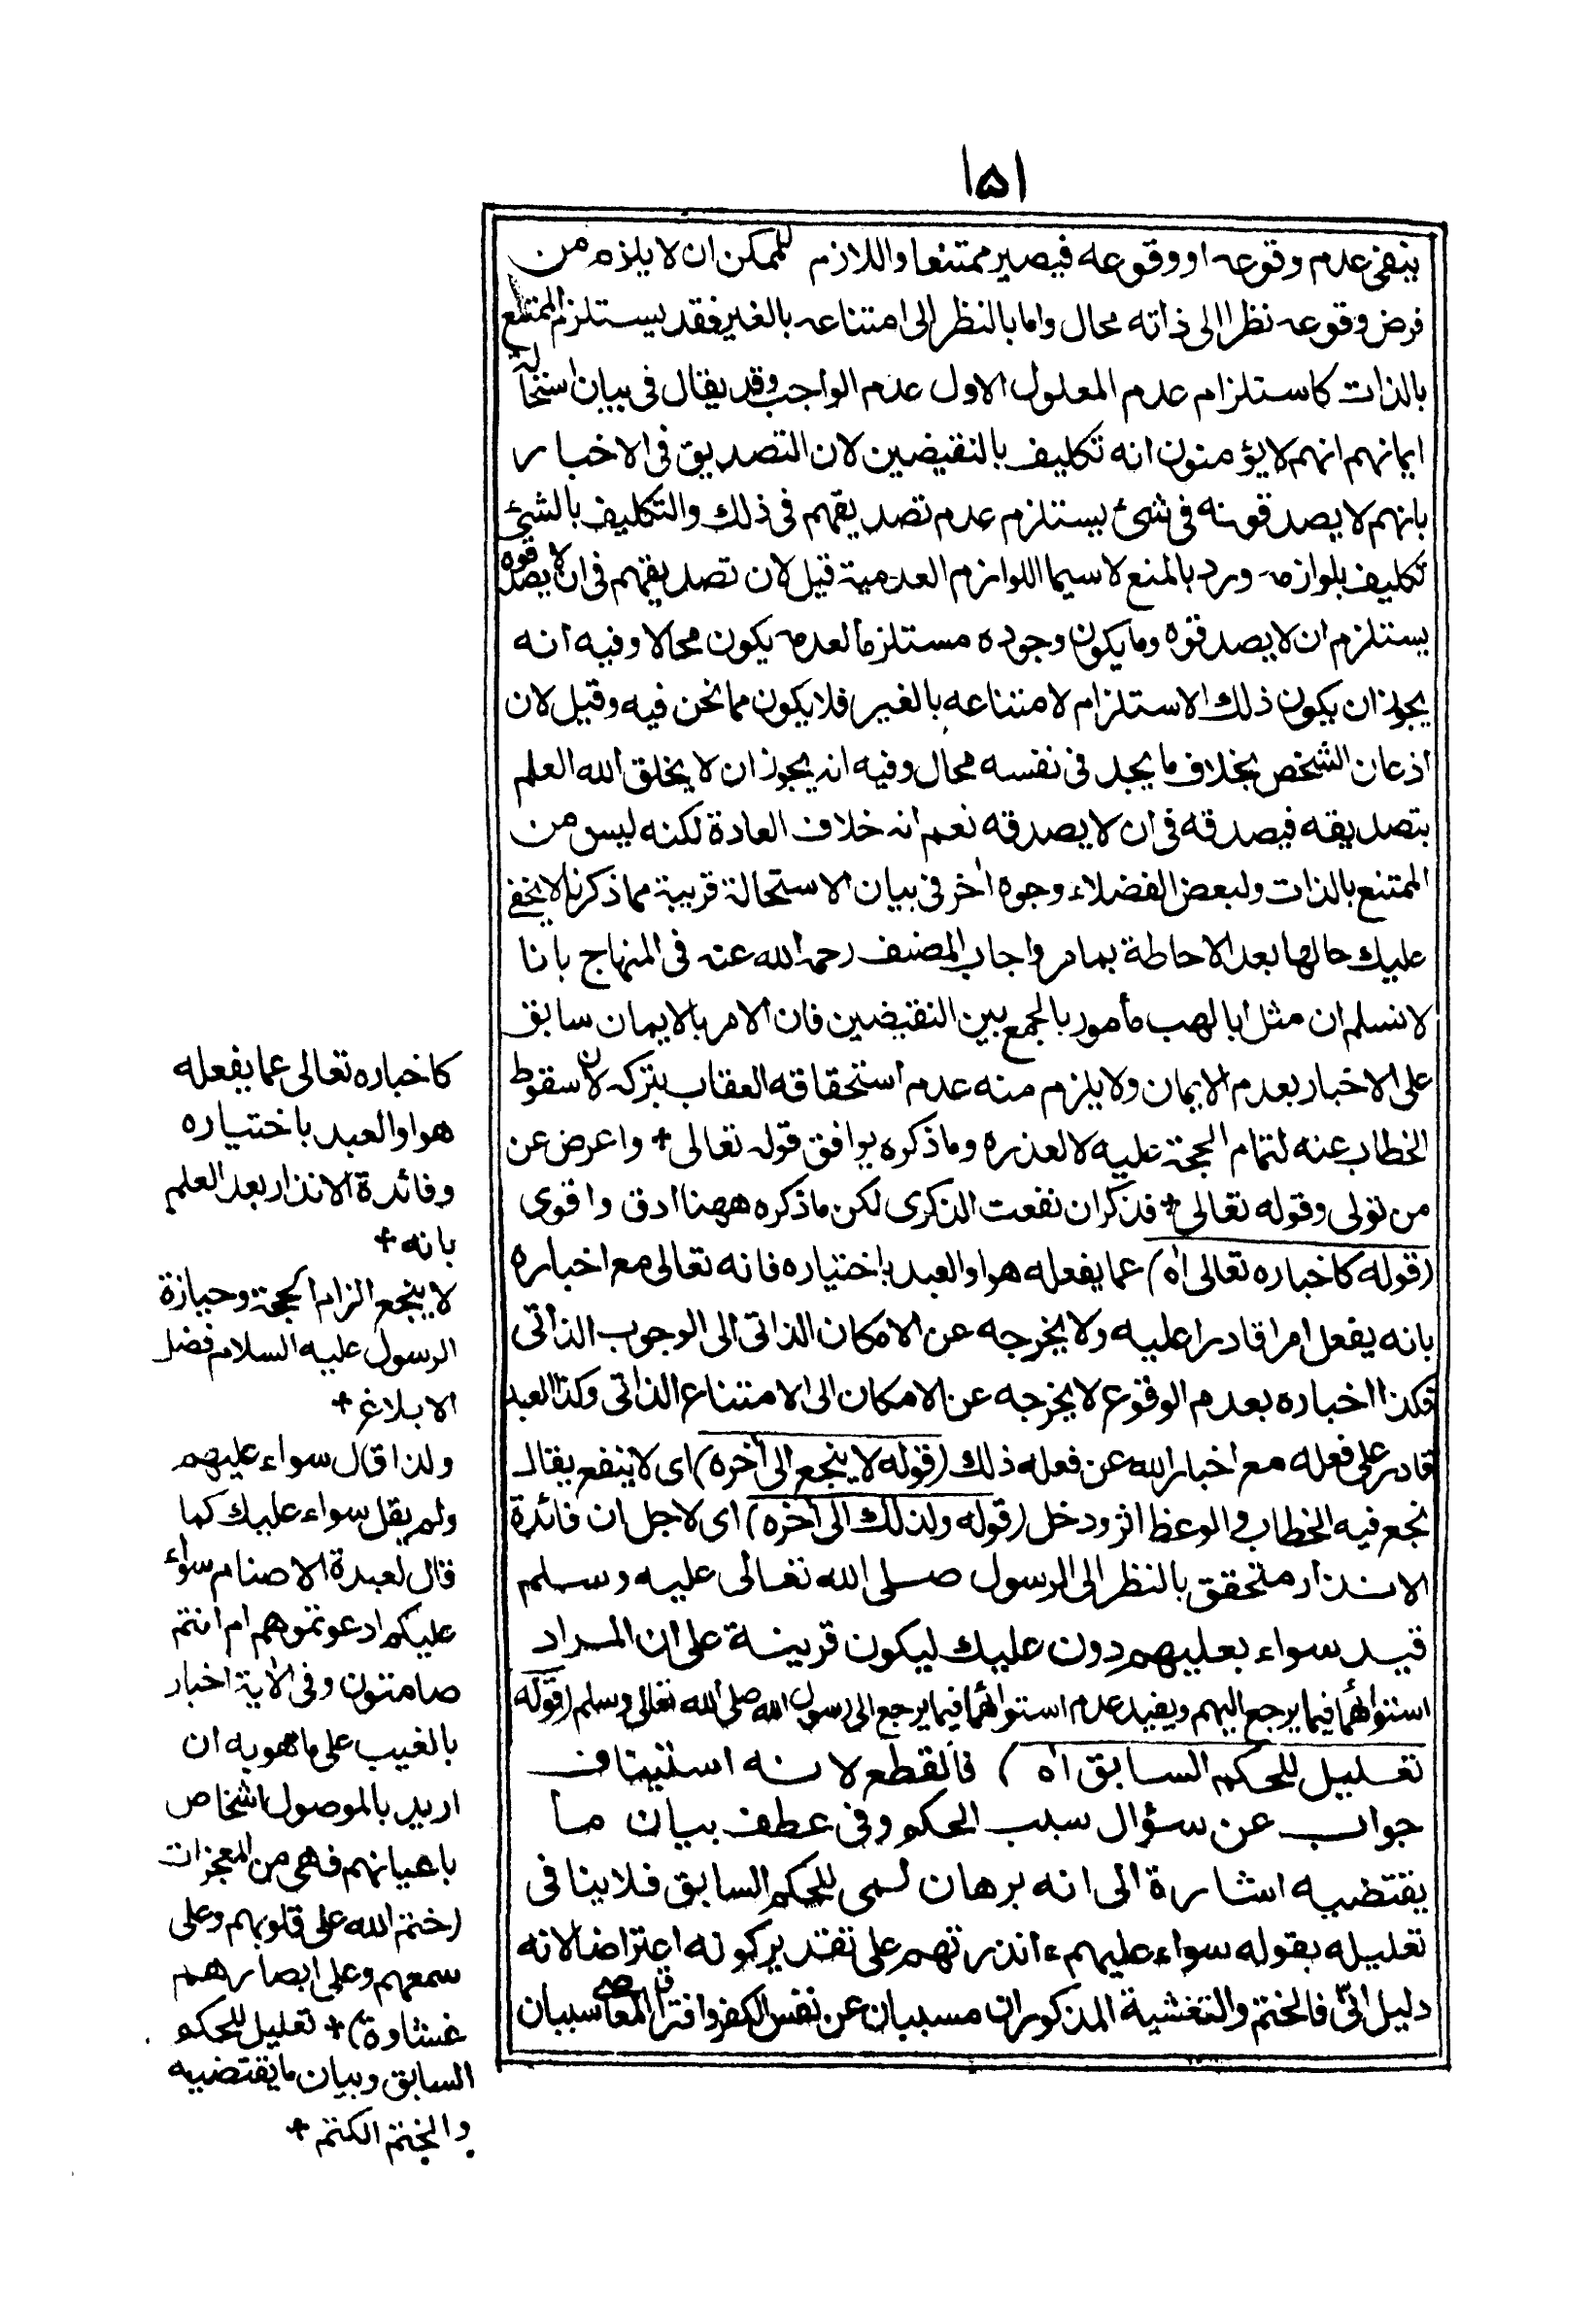 ١٥١
ينفى عدم وقوعه او وقوعه فيصير ممتنعا واللازم للممكن ان لا يلزم من
فرض وقوعه نظرا الى ذاته محال واما بالنظر الى امتناعه بالغير فقد يستلزم الممتنع
بالذات كاستلزام عدم المعلول الاول عدم الواجب وقد يقال فى بيان استحالة
ايمانهم انهم لا يؤمنون انه تكليف بالنقيضين لان التصديق فى الاخبار
بانهم لا يصدقونه فى شئ يستلزم عدم تصديقهم فى ذلك والتكليف بالشئ
تكليف بلوازمه ورد بالمنع لا سيما اللوازم العدمية قيل لان تصديقهم فى ان لا يصدقوه
يستلزم ان لا يصدقوه وما يكون وجوده مستلزما لعدمه يكون محالا وفيه انه
يجوز ان يكون ذلك الاستلزام لامتناعه بالغير فلا يكون مما نحن فيه وقيل لان
اذعان الشخص بخلاف ما يجد فى نفسه محال وفيه انه يجوز ان لا يخلق الله العلم
بتصديقه فيصدقه فى ان لا يصدقه نعم انه خلاف العادة لكنه ليس من
الممتنع بالذات ولبعض الفضلاء وجوه اخر فى بيان الاستحالة قريبة مما ذكرنا لا يخفى
عليك حالها بعد الاحاطة بما مر واجاب المصنف رحمه الله عنه فى المنهاج بانا
لا نسلم ان مثل ابا لهب مأمور بالجمع بين النقيضين فان الامر بالايمان سابق
على الاخبار بعدم الايمان ولا يلزم منه عدم استحقاقه العقاب بتركه لان سقوط
الخطاب عنه لتمام الحجة عليه لا لعذره وما ذكره يوافق قوله تعالى + واعرض عن
من تولى وقوله تعالى + فذكر ان نفعت الذكرى لكن ما ذكره ههنا ادق واقوى
(قوله كاخباره تعالى اه) عما يفعله هو او العبد باختياره فانه تعالى مع اخباره
بانه يفعل امرا قادرا عليه ولا يخرجه عن الامكان الذاتى الى الوجوب الذاتى
فكذا اخباره بعدم الوقوع لا يخرجه عن الامكان الى الامتناع الذاتى وكذا العبد
قادر على فعله مع اخبار الله عن فعله ذلك (قوله لا ينجع الى اخره) اى لا ينفع يقال
نجع فيه الخطاب والوعظ اثر ودخل (قوله ولذلك الى اخره) اى لاجل ان فائدة
الانذار متحقق بالنظر الى الرسول صلى الله تعالى عليه وسلم
قيد سواء بعليهم دون عليك ليكون قرينة على ان المراد
استوائهما فيما يرجع اليهم ويفيد عدم استوائهما فيما يرجع الى رسول الله صلى الله تعالى وسلم (قوله
تعليل للحكم السابق اه) فالقطع لانه استيناف
جواب عن سؤال سبب الحكم وفى عطف بيان ما
يقتضيه اشارة الى انه برهان لمى للحكم السابق فلا ينافى
تعليله بقوله سواء عليهم ءانذرتهم على تقدير كونه اعتراضا لانه
دليل انىّ فالختم والتغشية المذكوران مسببان عن نفس الكفر واقتراف المعاصى سببان
كاخباره تعالى عما يفعله
هو او العبد باختياره
وفائدة الانذار بعد العلم
بانه +
لا ينجع الزام الحجة وحيازة
الرسول عليه السلام فضل
الابلاغ +
ولذا قال سواء عليهم
ولم يقل سواء عليك كما
قال لعبدة الاصنام سواء
عليكم ادعوتموهم ام انتم
صامتون وفى الاية اخبار
بالغيب على ما هو به ان
اريد بالموصول اشخاص
باعيانهم فهى من المعجزات
(ختم الله على قلوبهم وعلى
سمعهم وعلى ابصارهم
غشاوة) + تعليل للحكم
السابق وبيان ما يقتضيه
والختم الكتم +